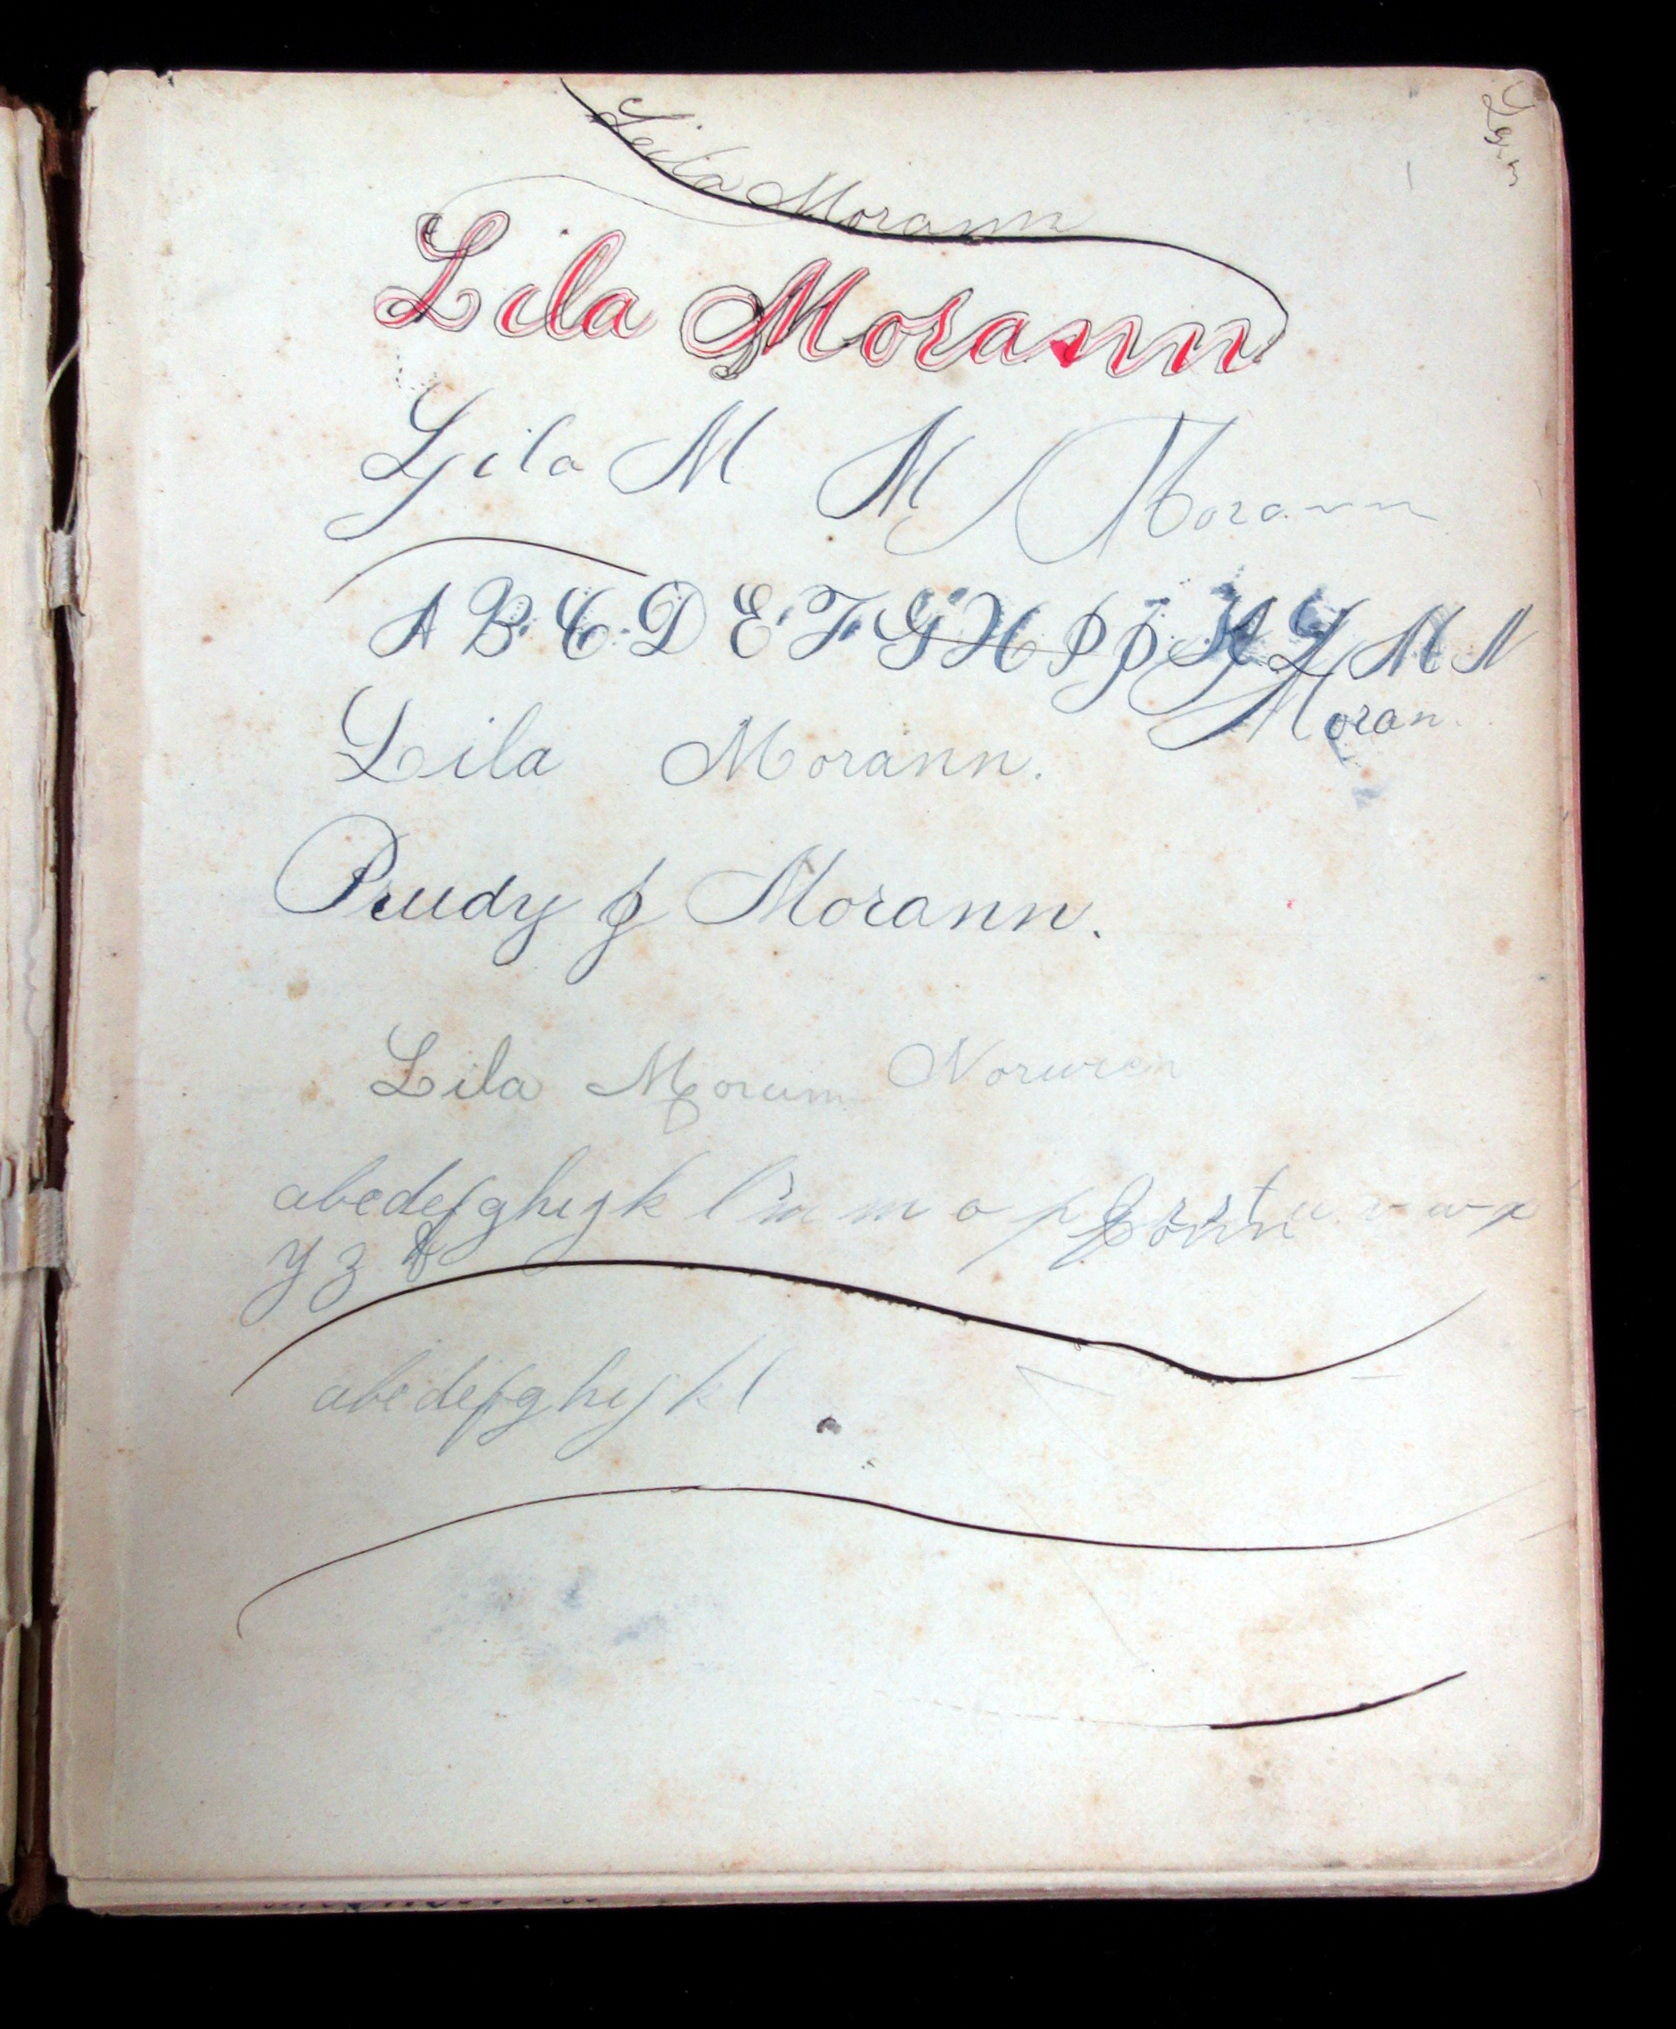 Leila Morann
Lila Morann
Lila M M Morann
A B C D E F G H I J K L M N
Moran
Lila Morann.
Prudy J Morann.
Lila
abcdefghijk l m n o p q r s t u v w x
y z &
abcdefghijkl